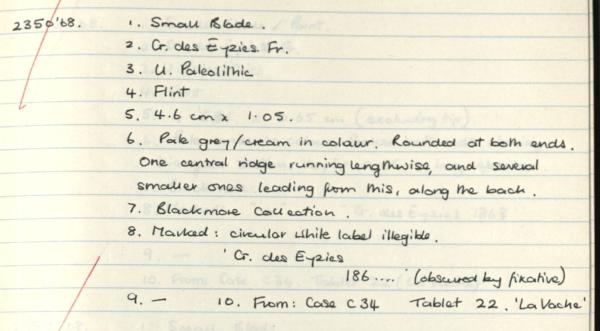 2350'68. 1. Small Blade.
2. Cr. des Eyzies. Fr.
3. U. Paleolithic.
4. Flint
5. 4.6 cm x 1.05.
6. Pale grey/cream in colour. Rounded at both ends.
One central ridge running lengthwise, and several
smaller ones leading from this, along the back.
7. Blackmore Collection.
8. Marked: circular white label illegible.
'Cr. des Eyzies
186....' (obscured by fixative)
9. — 10. From: Case C34 Tablet 22. 'La Vache'